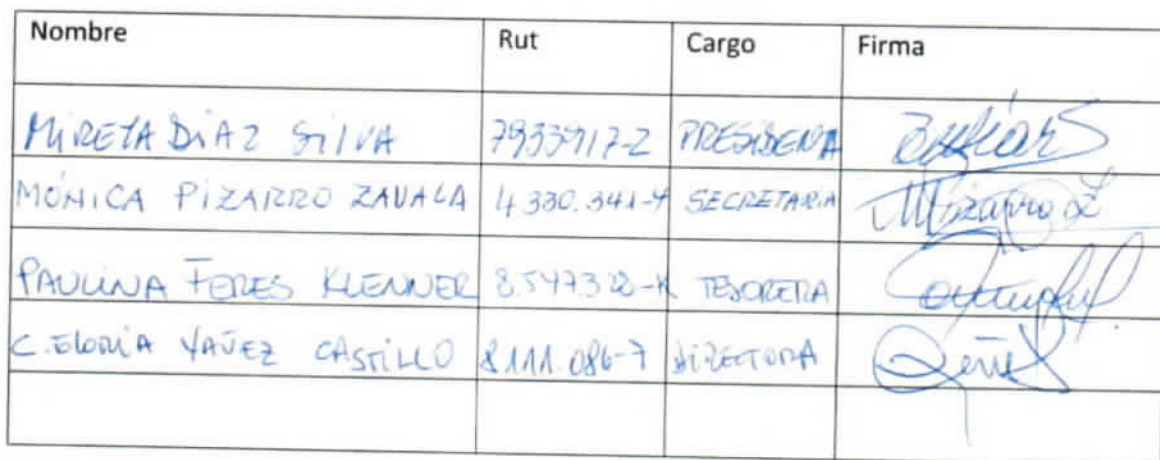 Nombre Rut Cargo Firma
MIREYA DIAZ SILVA 7933917-2 PRESIDENTA
MÓNICA PIZARRO ZAVALA 4.330.341-4 SECRETARIA
PAULINA FERES KLENNER TESORERA
C. GLORIA YAÑEZ CASTILLO 8.111.086-7 DIRECTORA